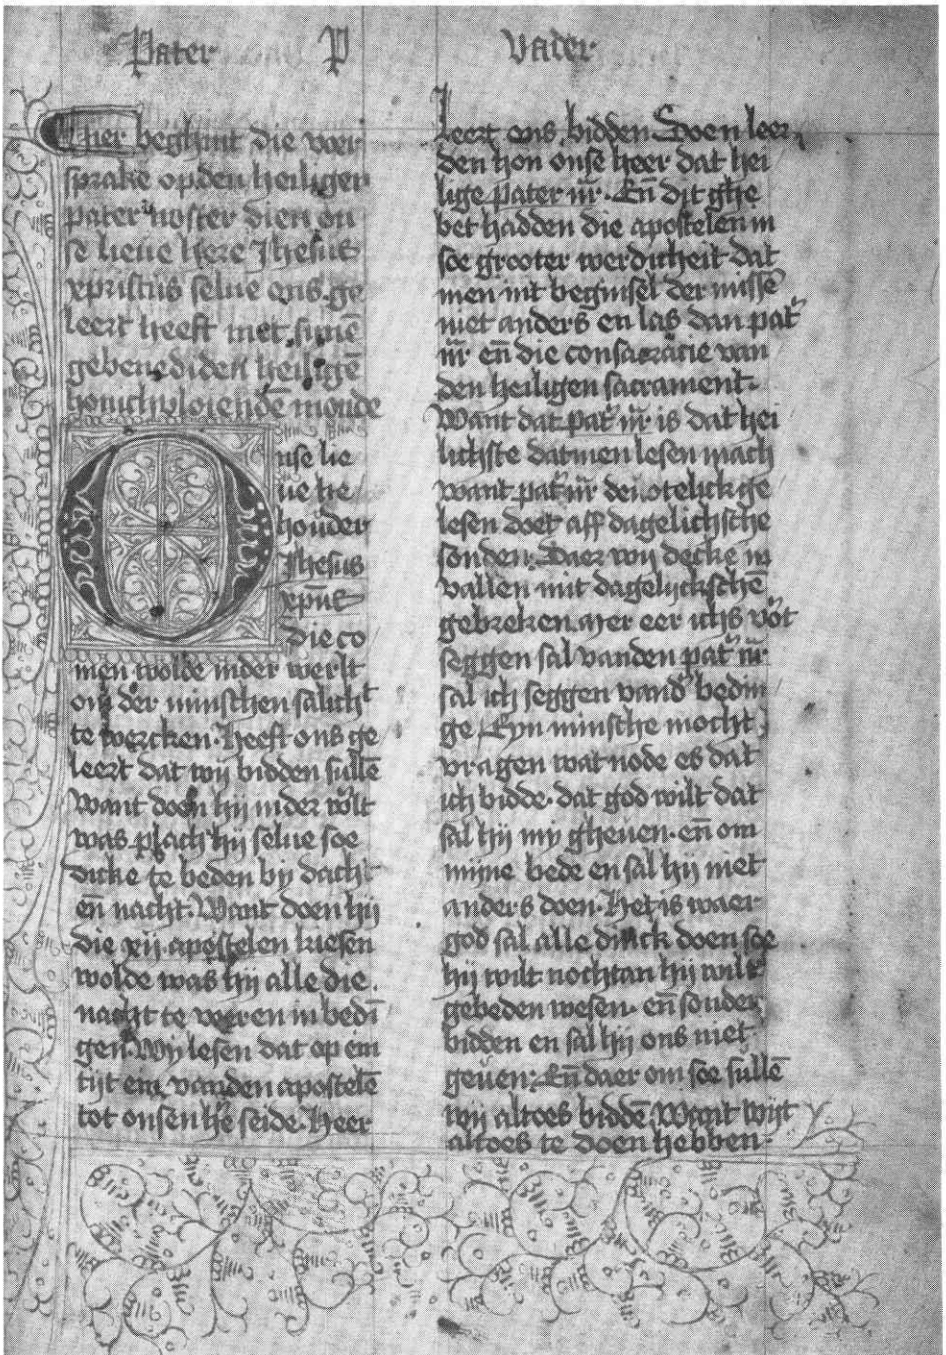 Pater P Vader
hier beghint die voer
sprake op den heiligen
pater noster dien on
se lieue here Jhesus
xpristus selue ons ge
leert heeft met sinē
gebenediden heiligē
honichvloiendē monde
Onse lie
ue he
honder
Jhesus
xpūs
die co
men wolde inder werlt
om der minschen salicht
te wercken. Heeft ons ge
leert dat wij bidden sullē
Want doen hij inder wͦlt
was plach hij selue soe
dicke te beden by dach
en̄ nacht. Want doen hij
die xij apostelen kiesen
wolde was hij alle die
nacht te voeren in bedī
gen. Wij lesen dat op ein
tijt ein vanden apostelē
tot onsen he seide. Heer
Leert ons bidden Doen leer
den hon onse heer dat hei
lige pater nr̄. En̄ dit ghe
bet hadden die apostelen in
soe grooter werdicheit dat
men int beginsel der missē
niet anders en las dan pat᷑
nr̄ en̄ die consacratie van
den heiligen sacrament.
Want dat pat᷑ nr̄ is dat hei
lichste datmen lesen mach
want pat᷑ nr̄ deuotelick ge
lesen doet aff dagelichsche
sonden. Daer wij decke in
vallen mit dagelijckschē
gebreken. Mer eer ichs vͦt
seggen sal vanden pat᷑ nr̄
sal ich seggen vand᷑ bedin
ge Eyn minsche mocht
vragen wat node es dat
ich bidde. dat god wilt dat
sal hij my gheuen. en̄ om
mijne bede en sal hij niet
anders doen. Het is waer
god sal alle dinck doen soe
hij wilt nochtan hij wilt
gebeden wesen. en̄ sonder
bidden en sal hij ons niet
geuen. En̄ daer om soe sullē
wij altoes biddē. Want wijt
altoes te doen hebben.